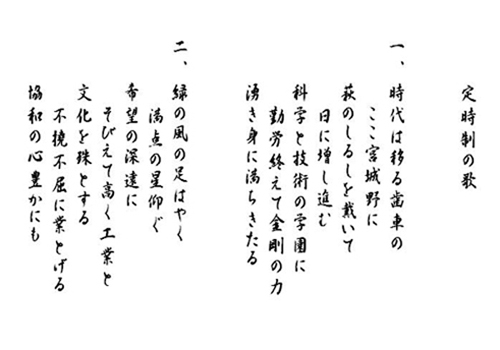 定時制の歌
一、時代は移る歯車の
ここ宮城野に
萩のしるしを戴いて
日に増し進む
科学と技術の学園に
勤労終えて金剛の力
湧き身に満ちきたる
二、緑の風の足はやく
満点の星仰ぐ
希望の深遠に
そびえて高く工業と
文化を珠とする
不撓不屈に業とげる
協和の心豊かにも